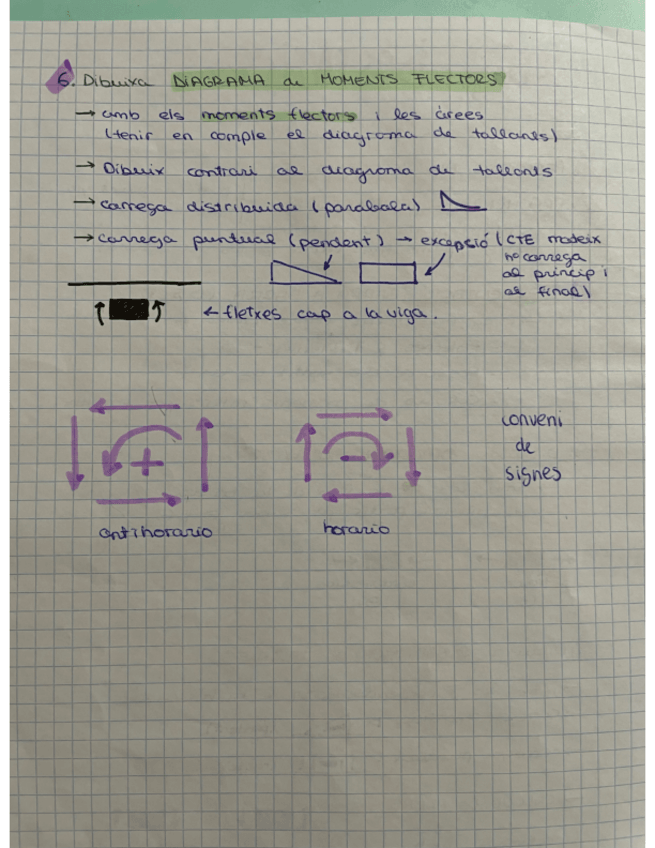 6. Dibuixa DIAGRAMA de MOMENTS FLECTORS
→ amb els moments flectors i les àrees
(tenir en compte el diagrama de tallants)
→ Dibuix contrari al diagrama de tallants
→ carrega distribuida (parabola)
→ carrega puntual (pendent) → excepsió (CTE mateix
no carrega
al principi
al final)
← fletxes cap a la viga.
+
−
conveni
de
signes
antihorario
horario